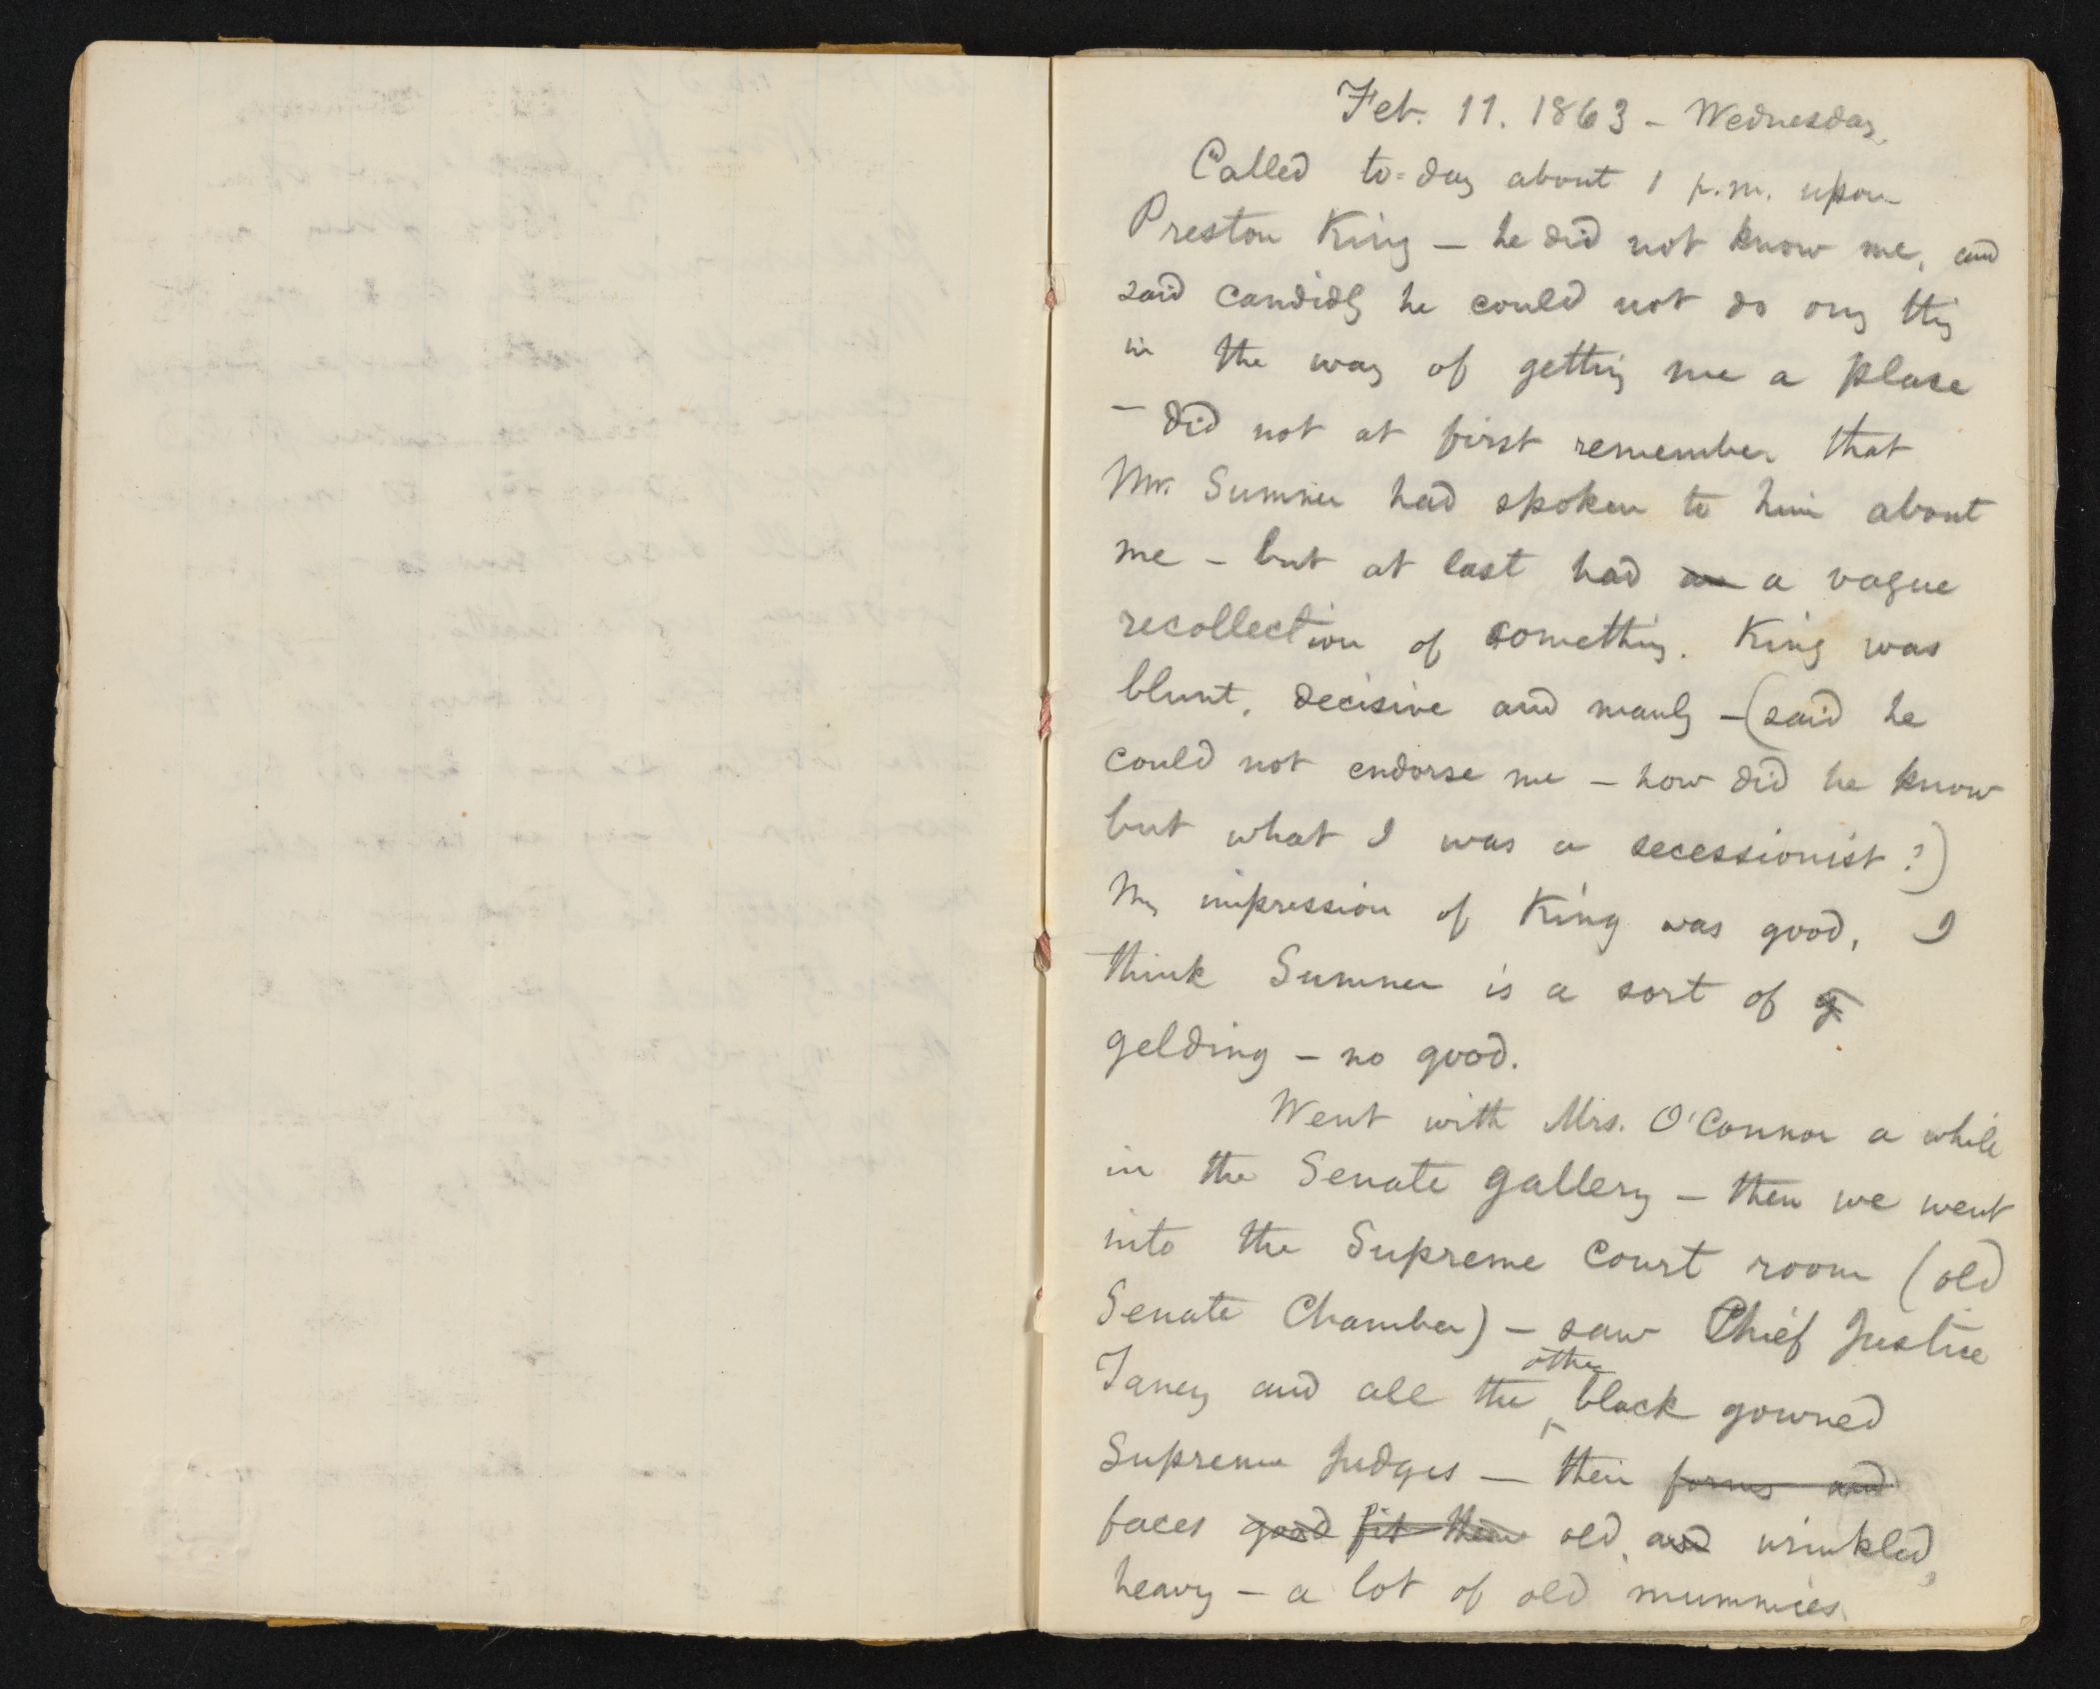 Feb. 11. 1863 – Wednesday.
Called to-day about 1 p.m. upon
Preston King – he did not know me, and
said candidly he could not do any thing
in the way of getting me a place
– did not at first remember that
Mr. Sumner had spoken to him about
me – but at last had an a vague
recollection of something. King was
blunt, decisive and manly – (said he
could not endorse me – how did he know
but what I was a secessionist?)
My impression of King was good, I
think Sumner is a sort of g
gelding – no good.
Went with Mrs. O'Connor a while
in the Senate gallery – then we went
into the Supreme Court room (old
Senate Chamber) – saw Chief Justice
other
Taney and all the ‸ black gowned
Supreme Judges – their forms and
faces good fit them old, and wrinkled,
heavy – a lot of old mummies.